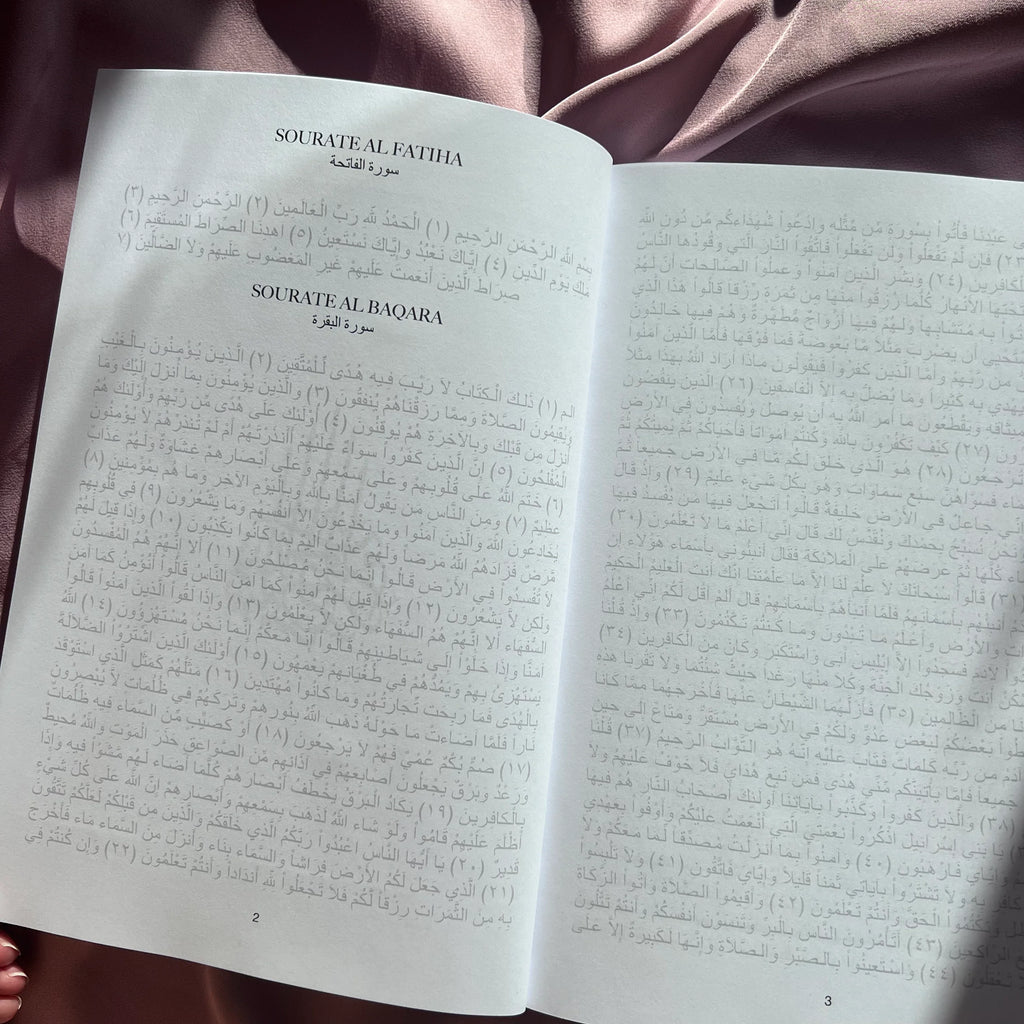 SOURATE AL FATIHA
سورة الفاتحة
بِسْمِ اللهِ الرَّحْمَنِ الرَّحِيمِ (١) الْحَمْدُ للّهِ رَبِّ الْعَالَمِينَ (٢) الرَّحْمنِ الرَّحِيمِ (٣)
مَلِكِ يَوْمِ الدِّينِ (٤) إِيَّاكَ نَعْبُدُ وإِيَّاكَ نَسْتَعِينُ (٥) اهدِنَا الصِّرَاطَ المُستَقِيمَ (٦)
صِرَاطَ الَّذِينَ أَنعَمتَ عَلَيهِمْ غَيرِ المَغضُوبِ عَلَيهِمْ وَلاَ الضَّالِّينَ (٧
SOURATE AL BAQARA
سورة البقرة
الم (١) ذَلِكَ الْكِتَابُ لاَ رَيْبَ فِيهِ هُدًى لِّلْمُتَّقِينَ (٢) الَّذِينَ يُؤْمِنُونَ بِالْغَيْبِ
وَيُقِيمُونَ الصَّلاةَ وَمِمَّا رَزَقْنَاهُمْ يُنفِقُونَ (٣) والَّذِينَ يُؤْمِنُونَ بِمَا أُنزِلَ إِلَيْكَ وَمَا
أُنزِلَ مِن قَبْلِكَ وَبِالآخِرَةِ هُمْ يُوقِنُونَ (٤) أُوْلَئِكَ عَلَى هُدًى مِّن رَّبِّهِمْ وَأُوْلَئِكَ هُمُ
الْمُفْلِحُونَ (٥) إِنَّ الَّذِينَ كَفَرُواْ سَوَاءٌ عَلَيْهِمْ أَأَنذَرْتَهُمْ أَمْ لَمْ تُنذِرْهُمْ لاَ يُؤْمِنُونَ
(٦) خَتَمَ اللّهُ عَلَى قُلُوبِهمْ وَعَلَى سَمْعِهِمْ وَعَلَى أَبْصَارِهِمْ غِشَاوَةٌ وَلَهُمْ عَذَابٌ
عظِيمٌ (٧) وَمِنَ النَّاسِ مَن يَقُولُ آمَنَّا بِاللّهِ وَبِالْيَوْمِ الآخِرِ وَمَا هُم بِمُؤْمِنِينَ (٨)
يُخَادِعُونَ اللّهَ وَالَّذِينَ آمَنُوا وَمَا يَخْدَعُونَ إِلاَّ أَنفُسَهُم وَمَا يَشْعُرُونَ (٩) فِي قُلُوبِهِم
مَّرَضٌ فَزَادَهُمُ اللّهُ مَرَضاً وَلَهُم عَذَابٌ أَلِيمٌ بِمَا كَانُوا يَكْذِبُونَ (١٠) وَإِذَا قِيلَ لَهُمْ
لاَ تُفْسِدُواْ فِي الأَرْضِ قَالُواْ إِنَّمَا نَحْنُ مُصْلِحُونَ (١١) أَلا إِنَّهُمْ هُمُ الْمُفْسِدُونَ
وَلَكِن لاَّ يَشْعُرُونَ (١٢) وَإِذَا قِيلَ لَهُمْ آمِنُواْ كَمَا آمَنَ النَّاسُ قَالُواْ أَنُؤْمِنُ كَمَا آمَنَ
السُّفَهَاء أَلا إِنَّهُمْ هُمُ السُّفَهَاء وَلَكِن لاَّ يَعْلَمُونَ (١٣) وَإِذَا لَقُواْ الَّذِينَ آمَنُواْ قَالُواْ
آمَنَّا وَإِذَا خَلَوْاْ إِلَى شَيَاطِينِهِمْ قَالُواْ إِنَّا مَعَكُمْ إِنَّمَا نَحْنُ مُسْتَهْزِؤُونَ (١٤) اللّهُ
يَسْتَهْزِئُ بِهِمْ وَيَمُدُّهُمْ فِي طُغْيَانِهِمْ يَعْمَهُونَ (١٥) أُوْلَئِكَ الَّذِينَ اشْتَرُوُاْ الضَّلاَلَةَ
بِالْهُدَى فَمَا رَبِحَت تِّجَارَتُهُمْ وَمَا كَانُواْ مُهْتَدِينَ (١٦) مَثَلُهُمْ كَمَثَلِ الَّذِي اسْتَوْقَدَ
نَاراً فَلَمَّا أَضَاءتْ مَا حَوْلَهُ ذَهَبَ اللّهُ بِنُورِهِمْ وَتَرَكَهُمْ فِي ظُلُمَاتٍ لاَّ يُبْصِرُونَ
(١٧) صُمٌّ بُكْمٌ عُمْيٌ فَهُمْ لاَ يَرْجِعُونَ (١٨) أَوْ كَصَيِّبٍ مِّنَ السَّمَاء فِيهِ ظُلُمَاتٌ
وَرَعْدٌ وَبَرْقٌ يَجْعَلُونَ أَصَابِعَهُمْ فِي آذَانِهِم مِّنَ الصَّوَاعِقِ حَذَرَ الْمَوْتِ واللّهُ مُحِيطٌ
بِالْكافِرِينَ (١٩) يَكَادُ الْبَرْقُ يَخْطَفُ أَبْصَارَهُمْ كُلَّمَا أَضَاء لَهُم مَّشَوْاْ فِيهِ وَإِذَا
أَظْلَمَ عَلَيْهِمْ قَامُواْ وَلَوْ شَاء اللّهُ لَذَهَبَ بِسَمْعِهِمْ وَأَبْصَارِهِمْ إِنَّ اللَّه عَلَى كُلِّ شَيْءٍ
قَدِيرٌ (٢٠) يَا أَيُّهَا النَّاسُ اعْبُدُواْ رَبَّكُمُ الَّذِي خَلَقَكُمْ وَالَّذِينَ مِن قَبْلِكُمْ لَعَلَّكُمْ تَتَّقُونَ
(٢١) الَّذِي جَعَلَ لَكُمُ الأَرْضَ فِرَاشاً وَالسَّمَاء بِنَاء وَأَنزَلَ مِنَ السَّمَاء مَاء فَأَخْرَجَ
بِهِ مِنَ الثَّمَرَاتِ رِزْقاً لَّكُمْ فَلاَ تَجْعَلُواْ لِلّهِ أَندَاداً وَأَنتُمْ تَعْلَمُونَ (٢٢) وَإِن كُنتُمْ فِي
2
عَبْدِنَا فَأْتُواْ بِسُورَةٍ مِّن مِّثْلِهِ وَادْعُواْ شُهَدَاءكُم مِّن دُونِ اللّهِ
(٢٣) فَإِن لَّمْ تَفْعَلُواْ وَلَن تَفْعَلُواْ فَاتَّقُواْ النَّارَ الَّتِي وَقُودُهَا النَّاسُ
لِلْكَافِرِينَ (٢٤) وَبَشِّرِ الَّذِين آمَنُواْ وَعَمِلُواْ الصَّالِحَاتِ أَنَّ لَهُمْ
تَحْتِهَا الأَنْهَارُ كُلَّمَا رُزِقُواْ مِنْهَا مِن ثَمَرَةٍ رِّزْقاً قَالُواْ هَذَا الَّذِي
وَأُتُواْ بِهِ مُتَشَابِهاً وَلَهُمْ فِيهَا أَزْوَاجٌ مُّطَهَّرَةٌ وَهُمْ فِيهَا خَالِدُونَ
يَسْتَحْيِي أَن يَضْرِبَ مَثَلاً مَّا بَعُوضَةً فَمَا فَوْقَهَا فَأَمَّا الَّذِينَ آمَنُواْ
مِن رَّبِّهِمْ وَأَمَّا الَّذِينَ كَفَرُواْ فَيَقُولُونَ مَاذَا أَرَادَ اللَّهُ بِهَذَا مَثَلاً
وَيَهْدِي بِهِ كَثِيراً وَمَا يُضِلُّ بِهِ إِلاَّ الْفَاسِقِينَ (٢٦) الَّذِينَ يَنقُضُونَ
مِيثَاقِهِ وَيَقْطَعُونَ مَا أَمَرَ اللَّهُ بِهِ أَن يُوصَلَ وَيُفْسِدُونَ فِي الأَرْضِ
(٢٧) كَيْفَ تَكْفُرُونَ بِاللَّهِ وَكُنتُمْ أَمْوَاتاً فَأَحْيَاكُمْ ثُمَّ يُمِيتُكُمْ ثُمَّ
تُرْجَعُونَ (٢٨) هُوَ الَّذِي خَلَقَ لَكُم مَّا فِي الأَرْضِ جَمِيعاً ثُمَّ
فَسَوَّاهُنَّ سَبْعَ سَمَاوَاتٍ وَهُوَ بِكُلِّ شَيْءٍ عَلِيمٌ (٢٩) وَإِذْ قَالَ
إِنِّي جَاعِلٌ فِي الأَرْضِ خَلِيفَةً قَالُواْ أَتَجْعَلُ فِيهَا مَن يُفْسِدُ فِيهَا
نَحْنُ نُسَبِّحُ بِحَمْدِكَ وَنُقَدِّسُ لَكَ قَالَ إِنِّي أَعْلَمُ مَا لاَ تَعْلَمُونَ (٣٠)
كُلَّهَا ثُمَّ عَرَضَهُمْ عَلَى الْمَلاَئِكَةِ فَقَالَ أَنبِئُونِي بِأَسْمَاء هَؤُلاء إِن
(٣١) قَالُواْ سُبْحَانَكَ لاَ عِلْمَ لَنَا إِلاَّ مَا عَلَّمْتَنَا إِنَّكَ أَنتَ الْعَلِيمُ الْحَكِيمُ
بِأَسْمَآئِهِمْ فَلَمَّا أَنبَأَهُمْ بِأَسْمَآئِهِمْ قَالَ أَلَمْ أَقُل لَّكُمْ إِنِّي أَعْلَمُ
وَالأَرْضِ وَأَعْلَمُ مَا تُبْدُونَ وَمَا كُنتُمْ تَكْتُمُونَ (٣٣) وَإِذْ قُلْنَا
فَسَجَدُواْ إِلاَّ إِبْلِيسَ أَبَى وَاسْتَكْبَرَ وَكَانَ مِنَ الْكَافِرِينَ (٣٤)
اسْكُنْ أَنتَ وَزَوْجُكَ الْجَنَّةَ وَكُلاَ مِنْهَا رَغَداً حَيْثُ شِئْتُمَا وَلاَ تَقْرَبَا هَذِهِ
مِنَ الْظَّالِمِينَ (٣٥) فَأَزَلَّهُمَا الشَّيْطَانُ عَنْهَا فَأَخْرَجَهُمَا مِمَّا كَانَا
بَعْضُكُمْ لِبَعْضٍ عَدُوٌّ وَلَكُمْ فِي الأَرْضِ مُسْتَقَرٌّ وَمَتَاعٌ إِلَى حِينٍ
آدَمُ مِن رَّبِّهِ كَلِمَاتٍ فَتَابَ عَلَيْهِ إِنَّهُ هُوَ التَّوَّابُ الرَّحِيمُ (٣٧) قُلْنَا
جَمِيعاً فَإِمَّا يَأْتِيَنَّكُم مِّنِّي هُدًى فَمَن تَبِعَ هُدَايَ فَلاَ خَوْفٌ عَلَيْهِمْ وَلاَ
(٣٨) وَالَّذِينَ كَفَرواْ وَكَذَّبُواْ بِآيَاتِنَا أُولَئِكَ أَصْحَابُ النَّارِ هُمْ فِيهَا
يَا بَنِي إِسْرَائِيلَ اذْكُرُواْ نِعْمَتِيَ الَّتِي أَنْعَمْتُ عَلَيْكُمْ وَأَوْفُواْ بِعَهْدِي
وَإِيَّايَ فَارْهَبُونِ (٤٠) وَآمِنُواْ بِمَا أَنزَلْتُ مُصَدِّقاً لِّمَا مَعَكُمْ وَلاَ
كَافِرٍ بِهِ وَلاَ تَشْتَرُواْ بِآيَاتِي ثَمَناً قَلِيلاً وَإِيَّايَ فَاتَّقُونِ (٤١) وَلاَ تَلْبِسُواْ
وَتَكْتُمُواْ الْحَقَّ وَأَنتُمْ تَعْلَمُونَ (٤٢) وَأَقِيمُواْ الصَّلاَةَ وَآتُواْ الزَّكَاةَ
مَعَ الرَّاكِعِينَ (٤٣) أَتَأْمُرُونَ النَّاسَ بِالْبِرِّ وَتَنسَوْنَ أَنفُسَكُمْ وَأَنتُمْ تَتْلُونَ
تَعْقِلُونَ (٤٤) وَاسْتَعِينُواْ بِالصَّبْرِ وَالصَّلاَةِ وَإِنَّهَا لَكَبِيرَةٌ إِلاَّ عَلَى
3